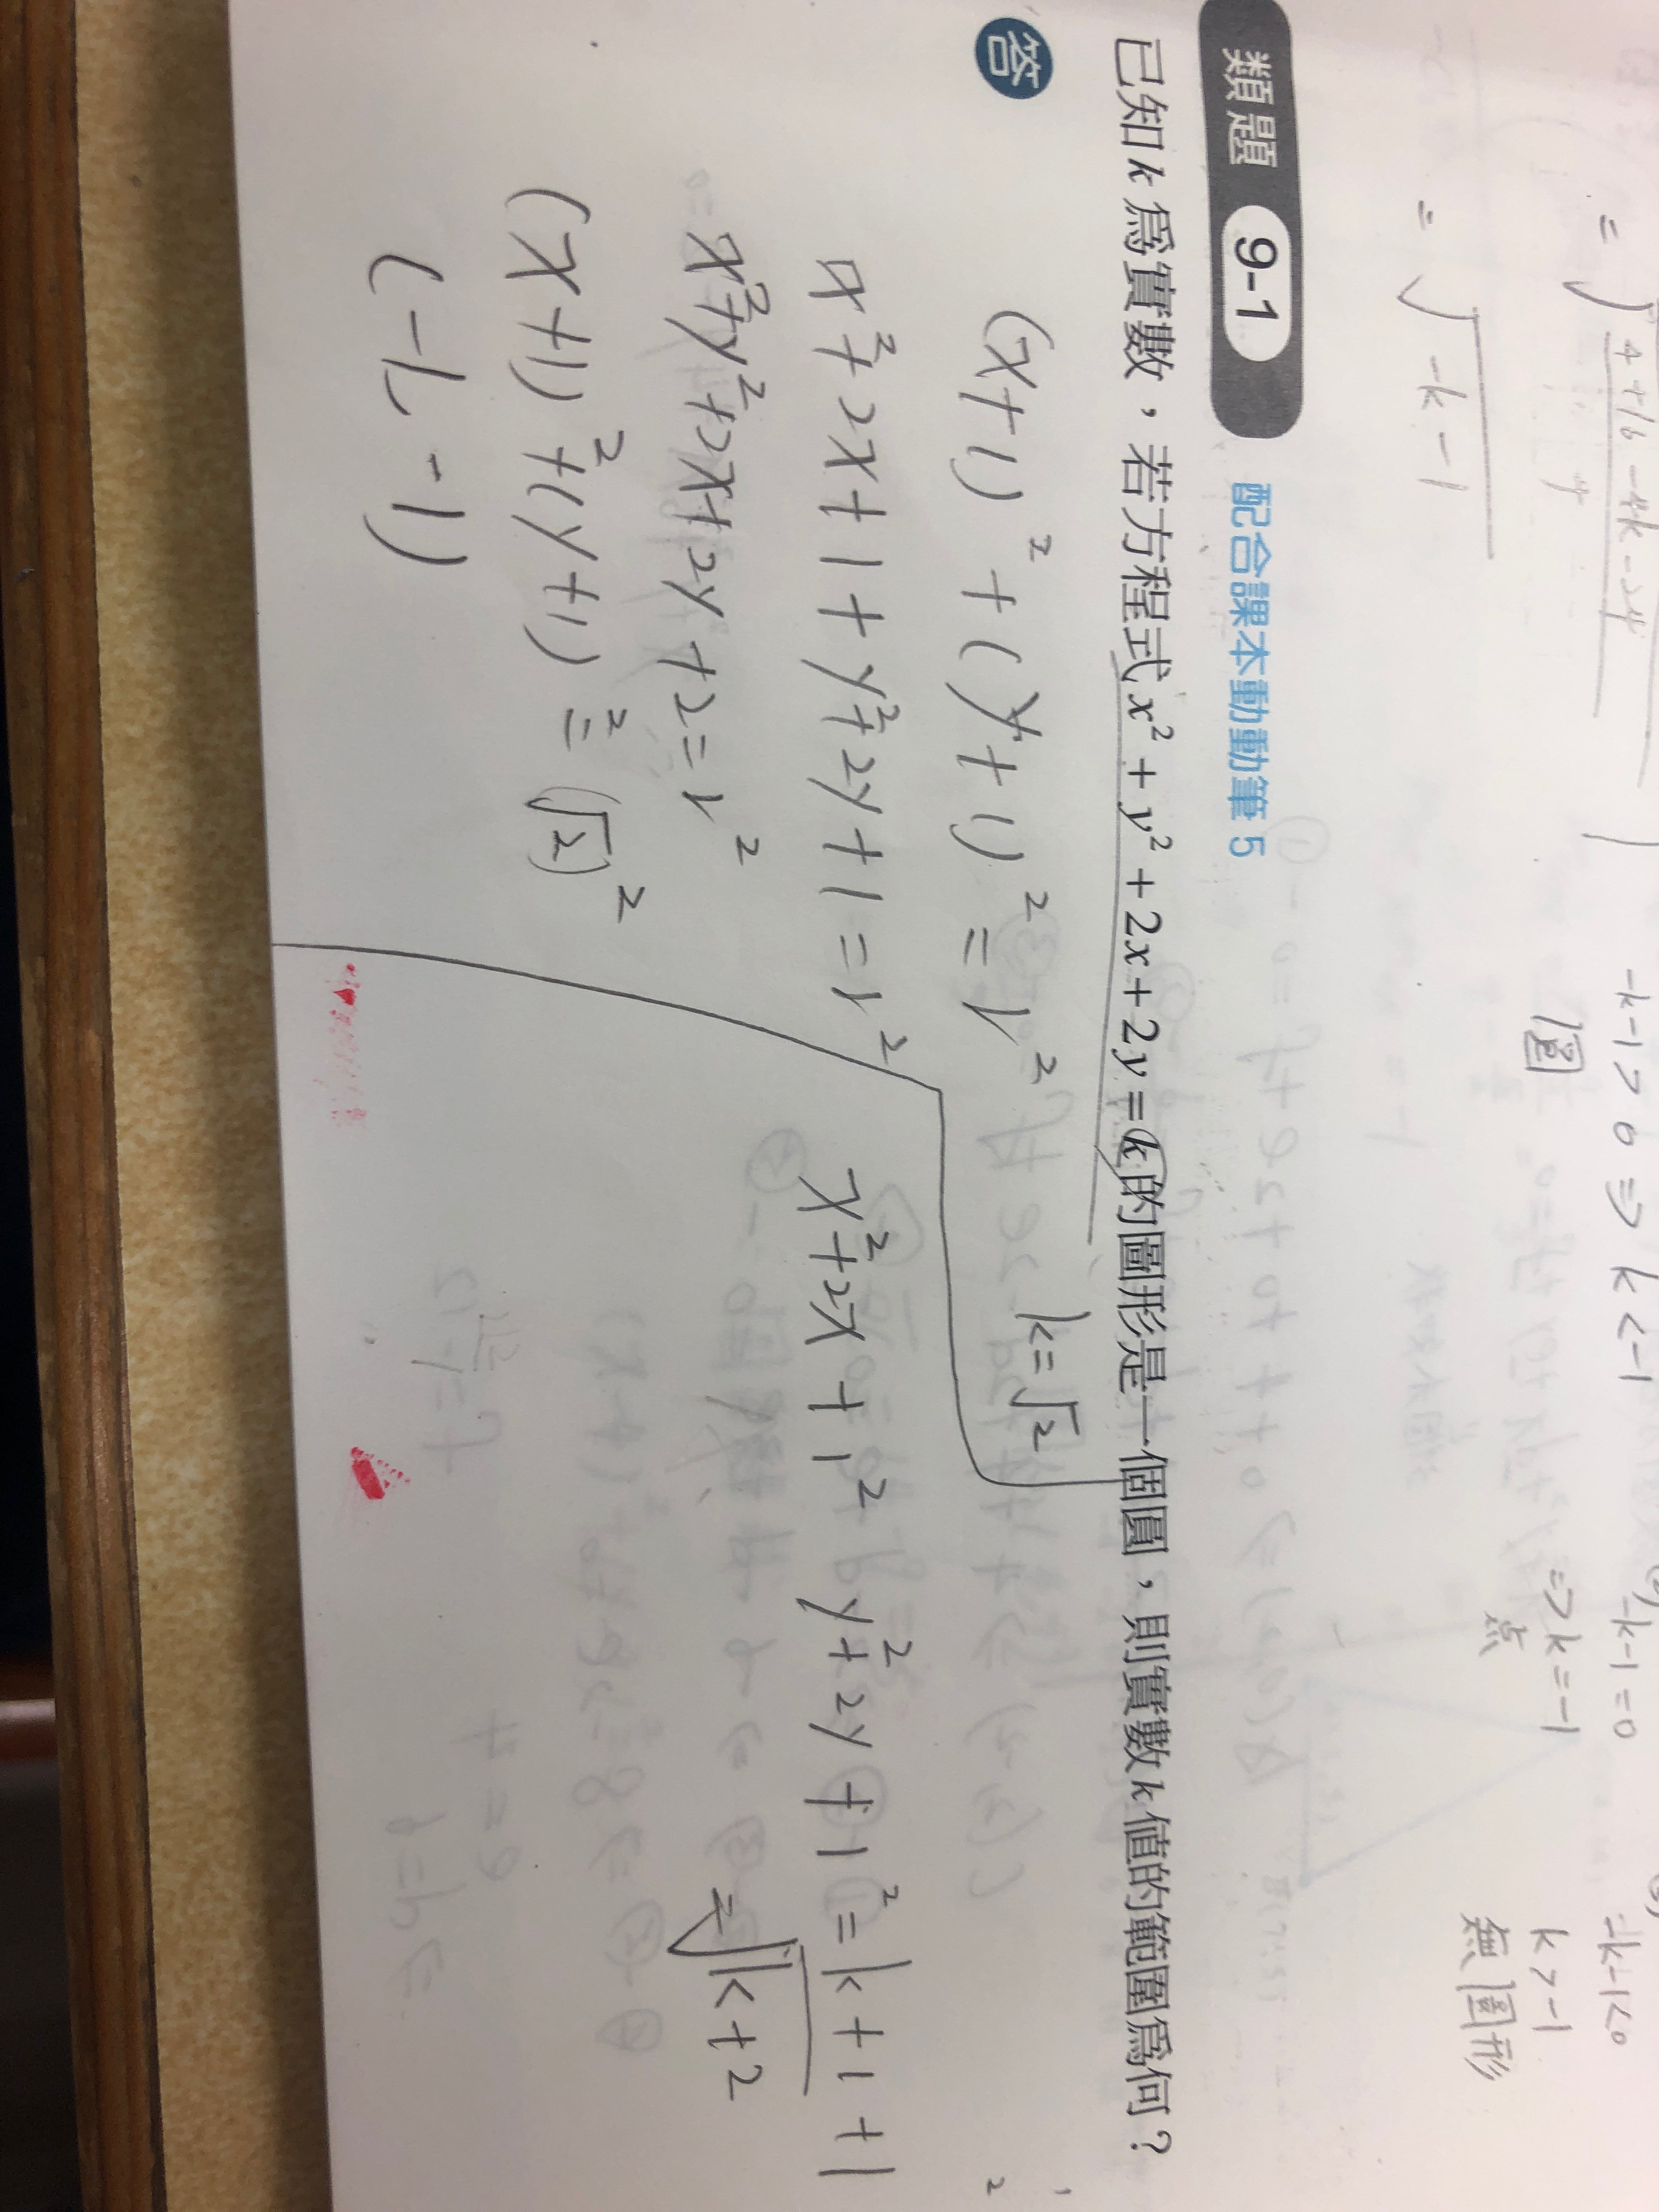 = √4+16-4k-24
= √-k-1
-k-1>0 => k<-1
圓
-k-1=0
=> k=-1
点
-k-1<0
k>-1
無圖形
類題 9-1 配合課本動動筆 5
已知 k 為實數，若方程式 x² + y² + 2x + 2y = k 的圖形是一個圓，則實數 k 值的範圍為何？
答
(x+1)² + (y+1)² = r²
k=√2
x²+2x+1+y²+2y+1=r²
=x²+y²+2x+2y+2=r²
(x+1)²+(y+1)²=(√2)²
(-1,-1)
x²+2x+1² y²+2y+1²=k+1+1
=√k+2